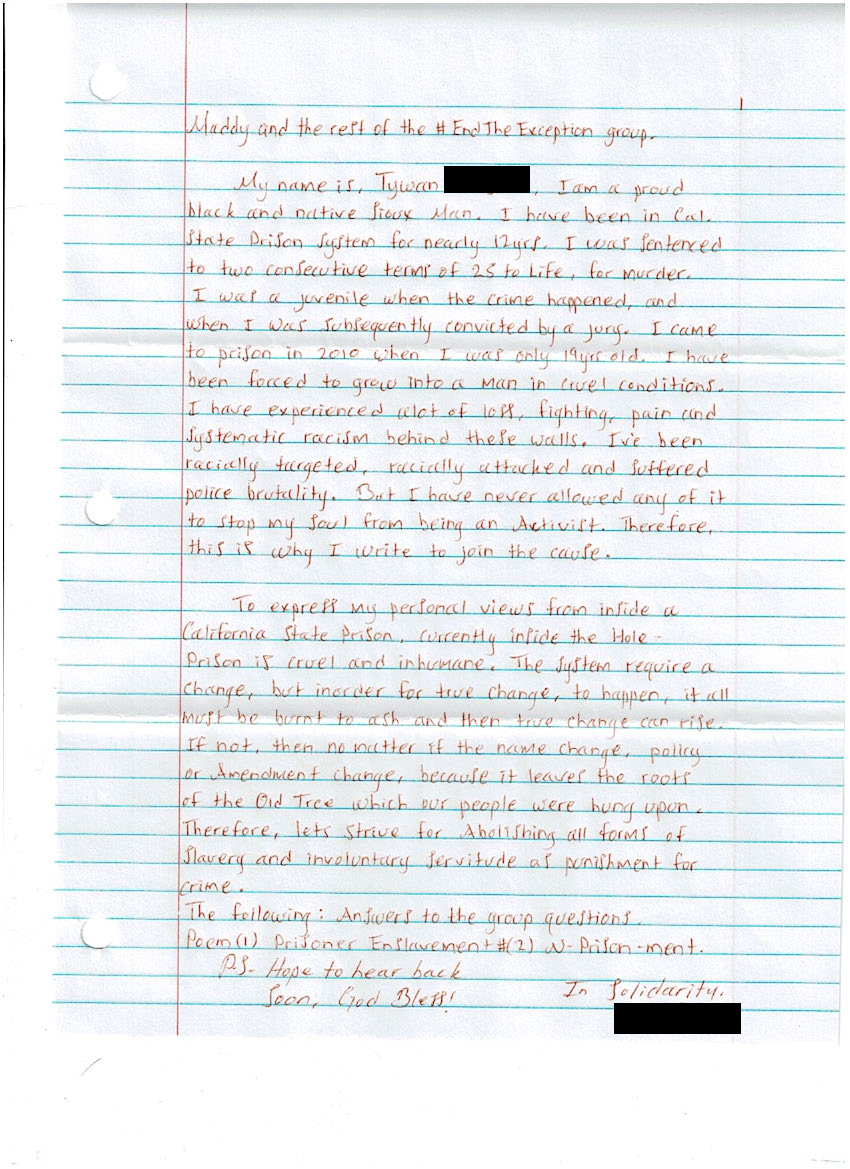 1
Maddy and the rest of the # End The Exception group.
My name is, Tywan , I am a proud
black and native Sioux Man. I have been in Cal.
State Prison System for nearly 12yrs. I was sentenced
to two consecutive terms of 25 to Life, for murder.
I was a juvenile when the crime happened, and
when I was subsequently convicted by a jury. I came
to prison in 2010 when I was only 19yrs old. I have
been forced to grow into a Man in cruel conditions.
I have experienced alot of loss, fighting, pain and
systematic racism behind these walls. I've been
racially targeted, racially attacked and suffered
police brutality. But I have never allowed any of it
to stop my soul from being an Activist. Therefore,
this is why I write to join the cause.
To express my personal views from inside a
California State Prison, currently inside the Hole-
Prison is cruel and inhumane. The system require a
change, but inorder for true change, to happen, it all
must be burnt to ash and then true change can rise.
If not, then no matter if the name change, policy
or Amendment change, because it leaves the roots
of the Old Tree which our people were hung upon.
Therefore, lets strive for Abolishing all forms of
slavery and involuntary servitude as punishment for
crime.
The following: Answers to the group questions.
Poem(1) Prisoner Enslavement #(2) N-Prison-ment.
P.S. Hope to hear back
Soon, God Bless!
In Solidarity.